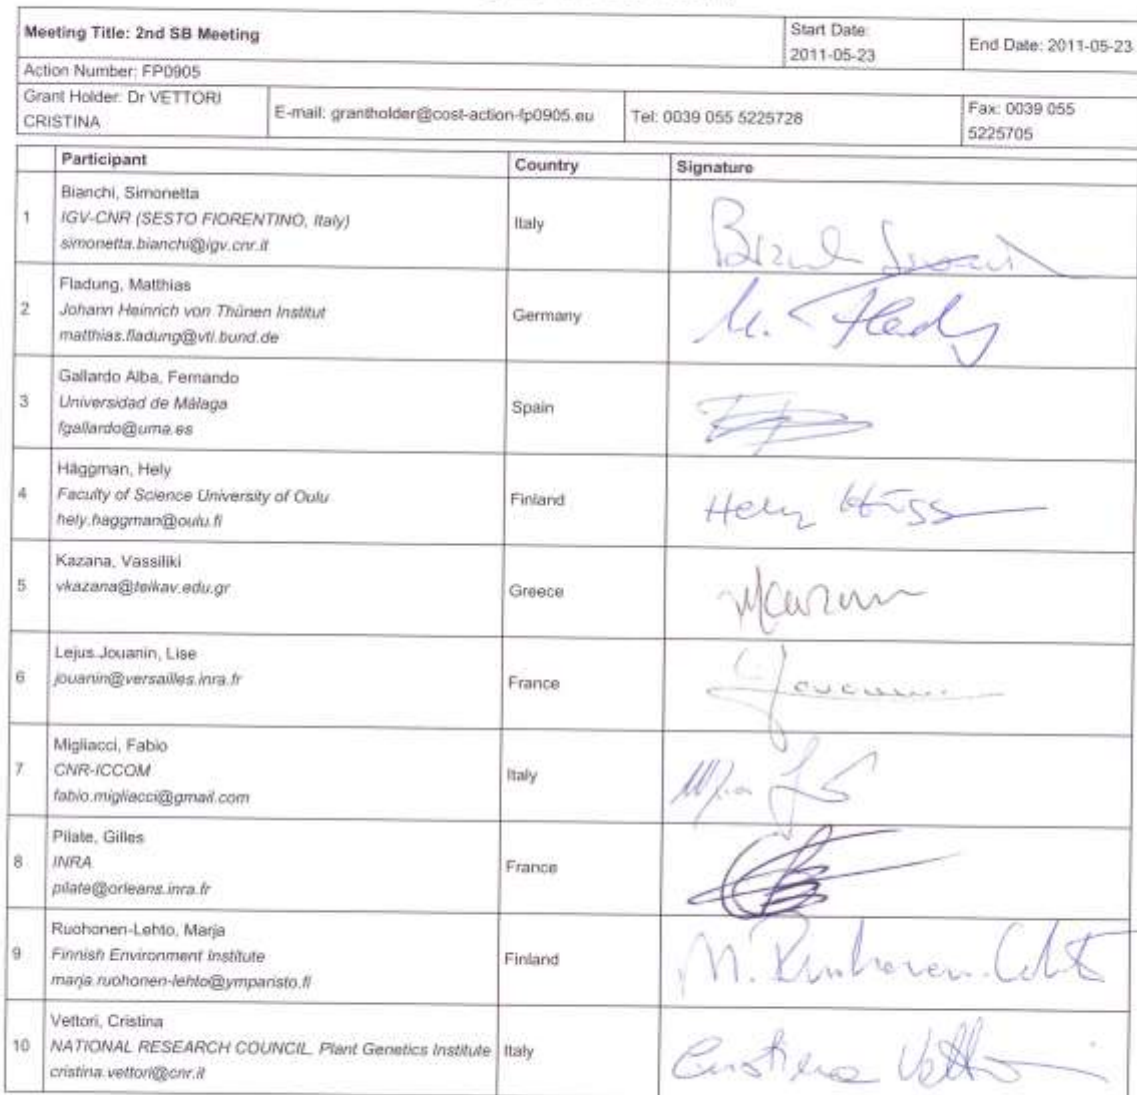 Meeting Title: 2nd SB Meeting
Start Date:
2011-05-23
End Date: 2011-05-23
Action Number: FP0905
Grant Holder: Dr VETTORI
CRISTINA
E-mail: grantholder@cost-action-fp0905.eu
Tel: 0039 055 5225728
Fax: 0039 055
5225705
Participant Country Signature
1
Bianchi, Simonetta
IGV-CNR (SESTO FIORENTINO, Italy)
simonetta.bianchi@igv.cnr.it
Italy
2
Fladung, Matthias
Johann Heinrich von Thünen Institut
matthias.fladung@vti.bund.de
Germany
M. Fladung
3
Gallardo Alba, Fernando
Universidad de Málaga
fgallardo@uma.es
Spain
4
Häggman, Hely
Faculty of Science University of Oulu
hely.haggman@oulu.fi
Finland
Hely Hägg
5
Kazana, Vassiliki
vkazana@teikav.edu.gr
Greece
6
Lejus Jouanin, Lise
jouanin@versailles.inra.fr
France
7
Migliacci, Fabio
CNR-ICCOM
fabio.migliacci@gmail.com
Italy
8
Pilate, Gilles
INRA
pilate@orleans.inra.fr
France
9
Ruohonen-Lehto, Marja
Finnish Environment Institute
marja.ruohonen-lehto@ymparisto.fi
Finland
M. Ruohonen-Lehto
10
Vettori, Cristina
NATIONAL RESEARCH COUNCIL. Plant Genetics Institute
cristina.vettori@cnr.it
Italy
Cristina Vettori